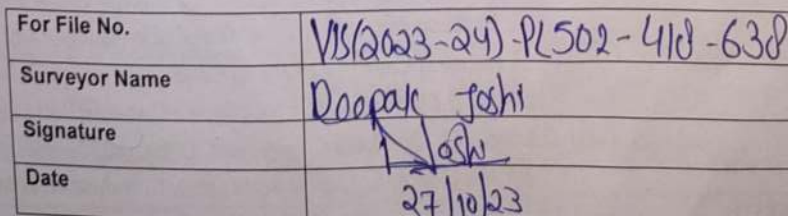 For File No. VIS(2023-24)-PL502-418-638
Surveyor Name Deepak Joshi
Signature Joshi
Date 27/10/23